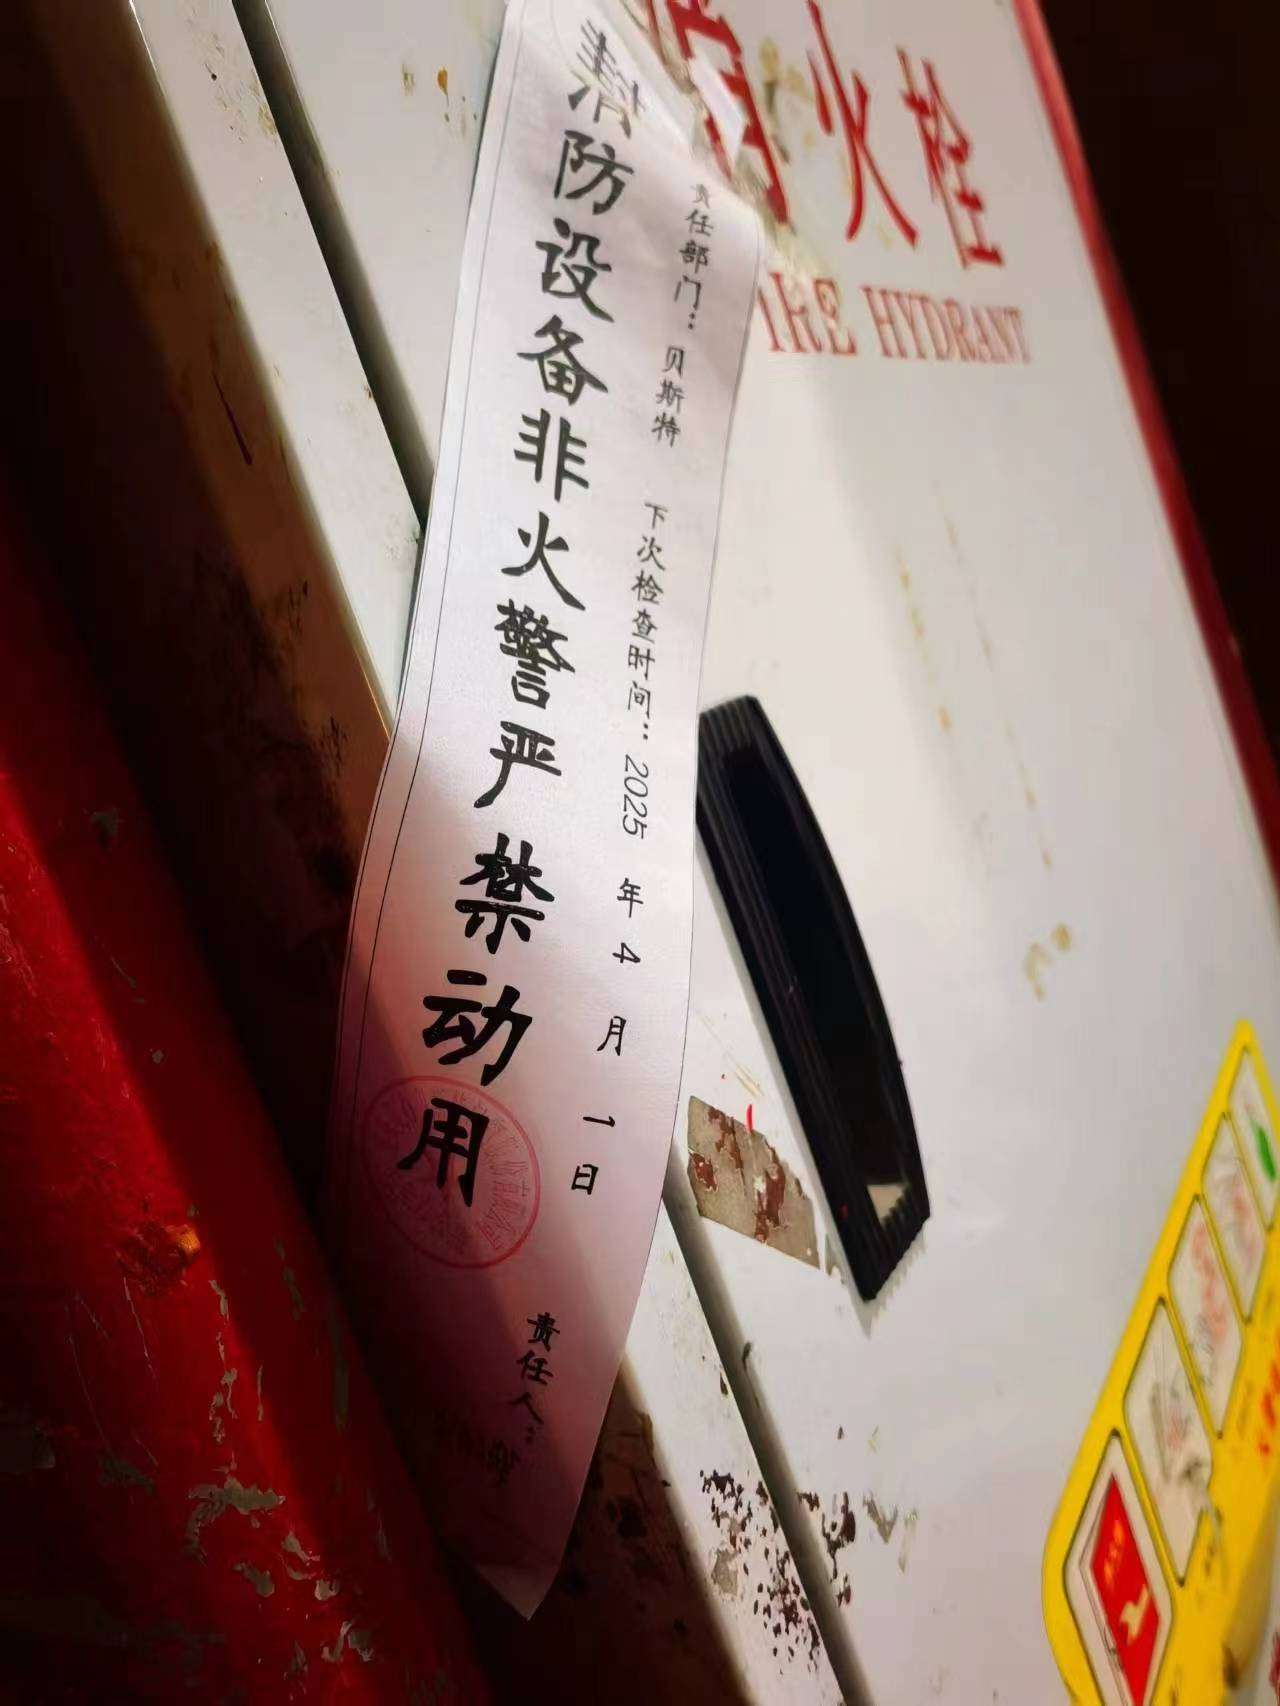 消火栓
FIRE HYDRANT
消防设备非火警严禁动用
责任部门：贝斯特 下次检查时间：2025 年 4 月 1 日
责任人：